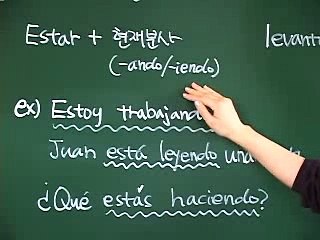 Estar + 현재분사
(-ando/-iendo)
levant
ex) Estoy trabajand
Juan está leyendo un
¿Qué estás haciendo?